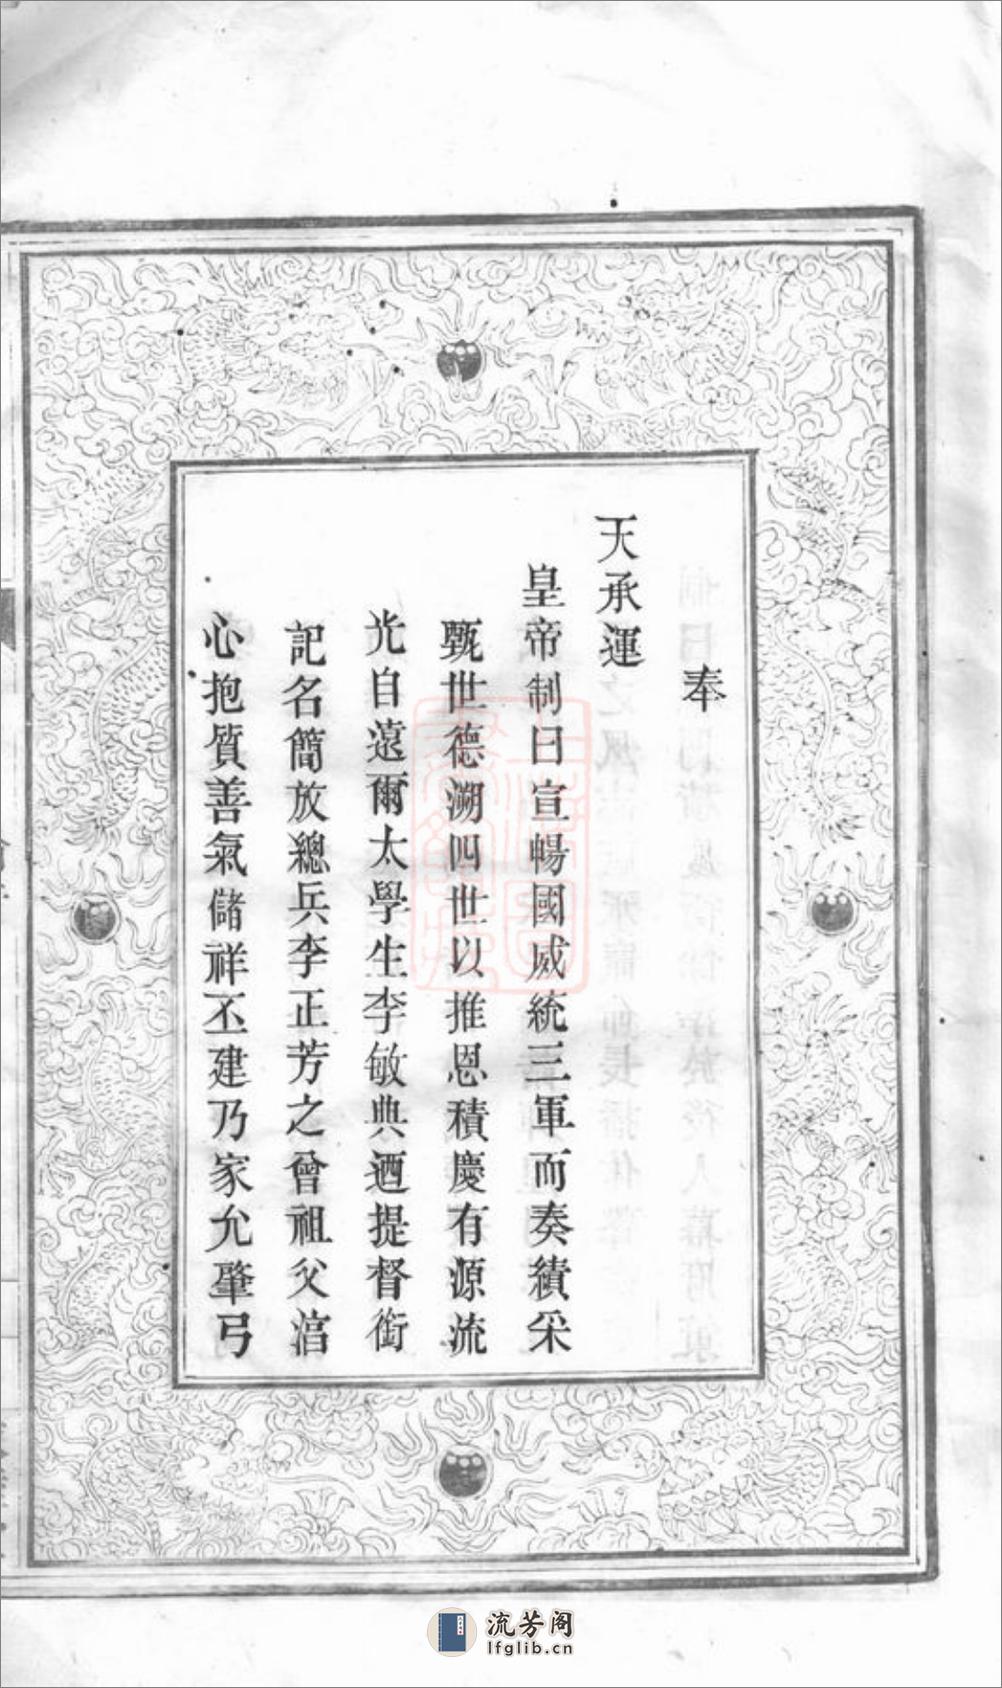 奉
天承運
皇帝制曰宣暢國威統三軍而奏績采
甄世德溯四世以推恩積慶有源流
光自遠爾太學生李敏典迺提督銜
記名簡放總兵李正芳之曾祖父涪
心抱質善氣儲祥丕建乃家允肇弓
流芳阁
lfglib.cn